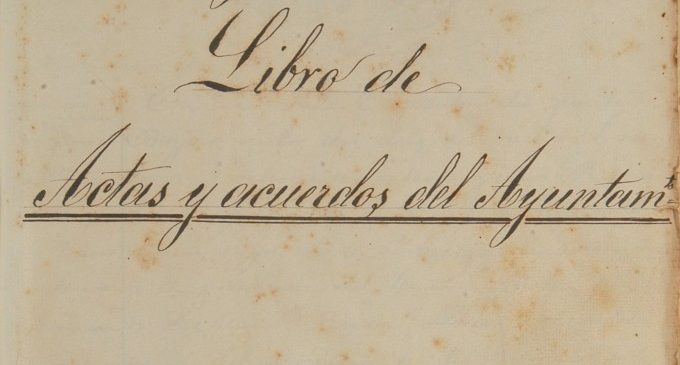 Libro de
Actas y acuerdos del Ayuntam.to